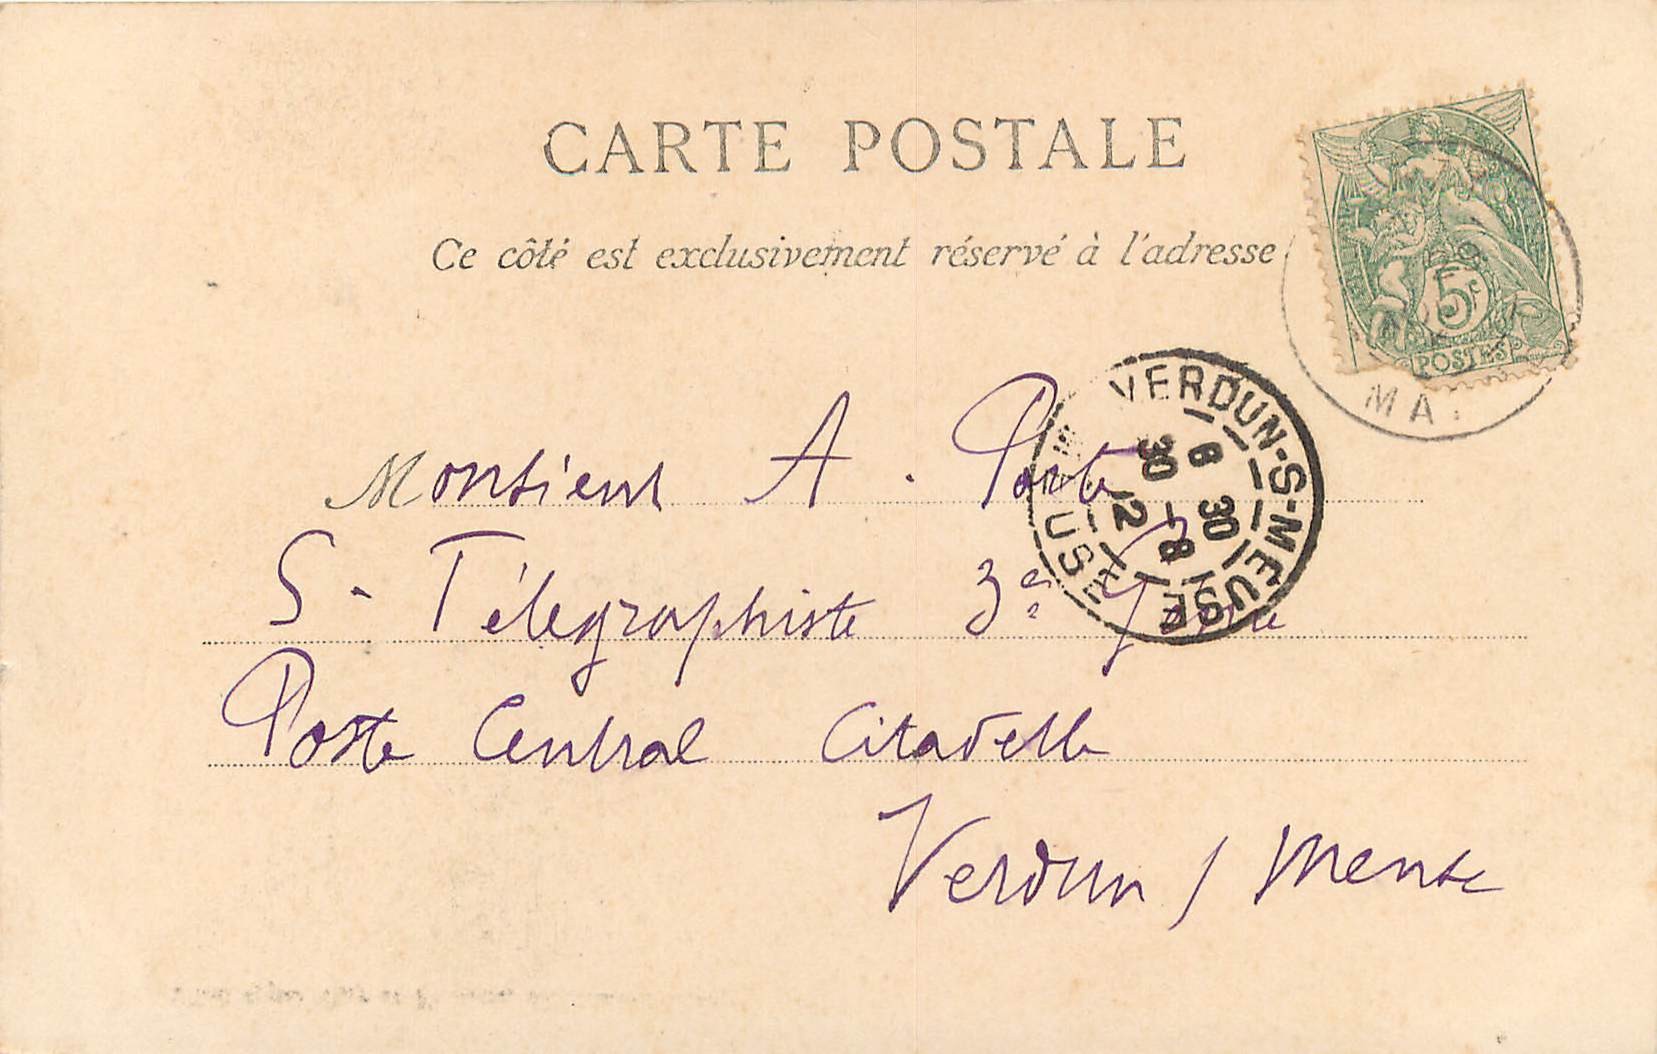 CARTE POSTALE
Ce côté est exclusivement réservé à l'adresse
5c
POSTES
MA.
VERDUN-S-MEUSE
6 30
30 - 8
12
MEUSE
Monsieur A. Porte
S- Télégraphiste 3e Génie
Poste Central Citadelle
Verdun / Meuse